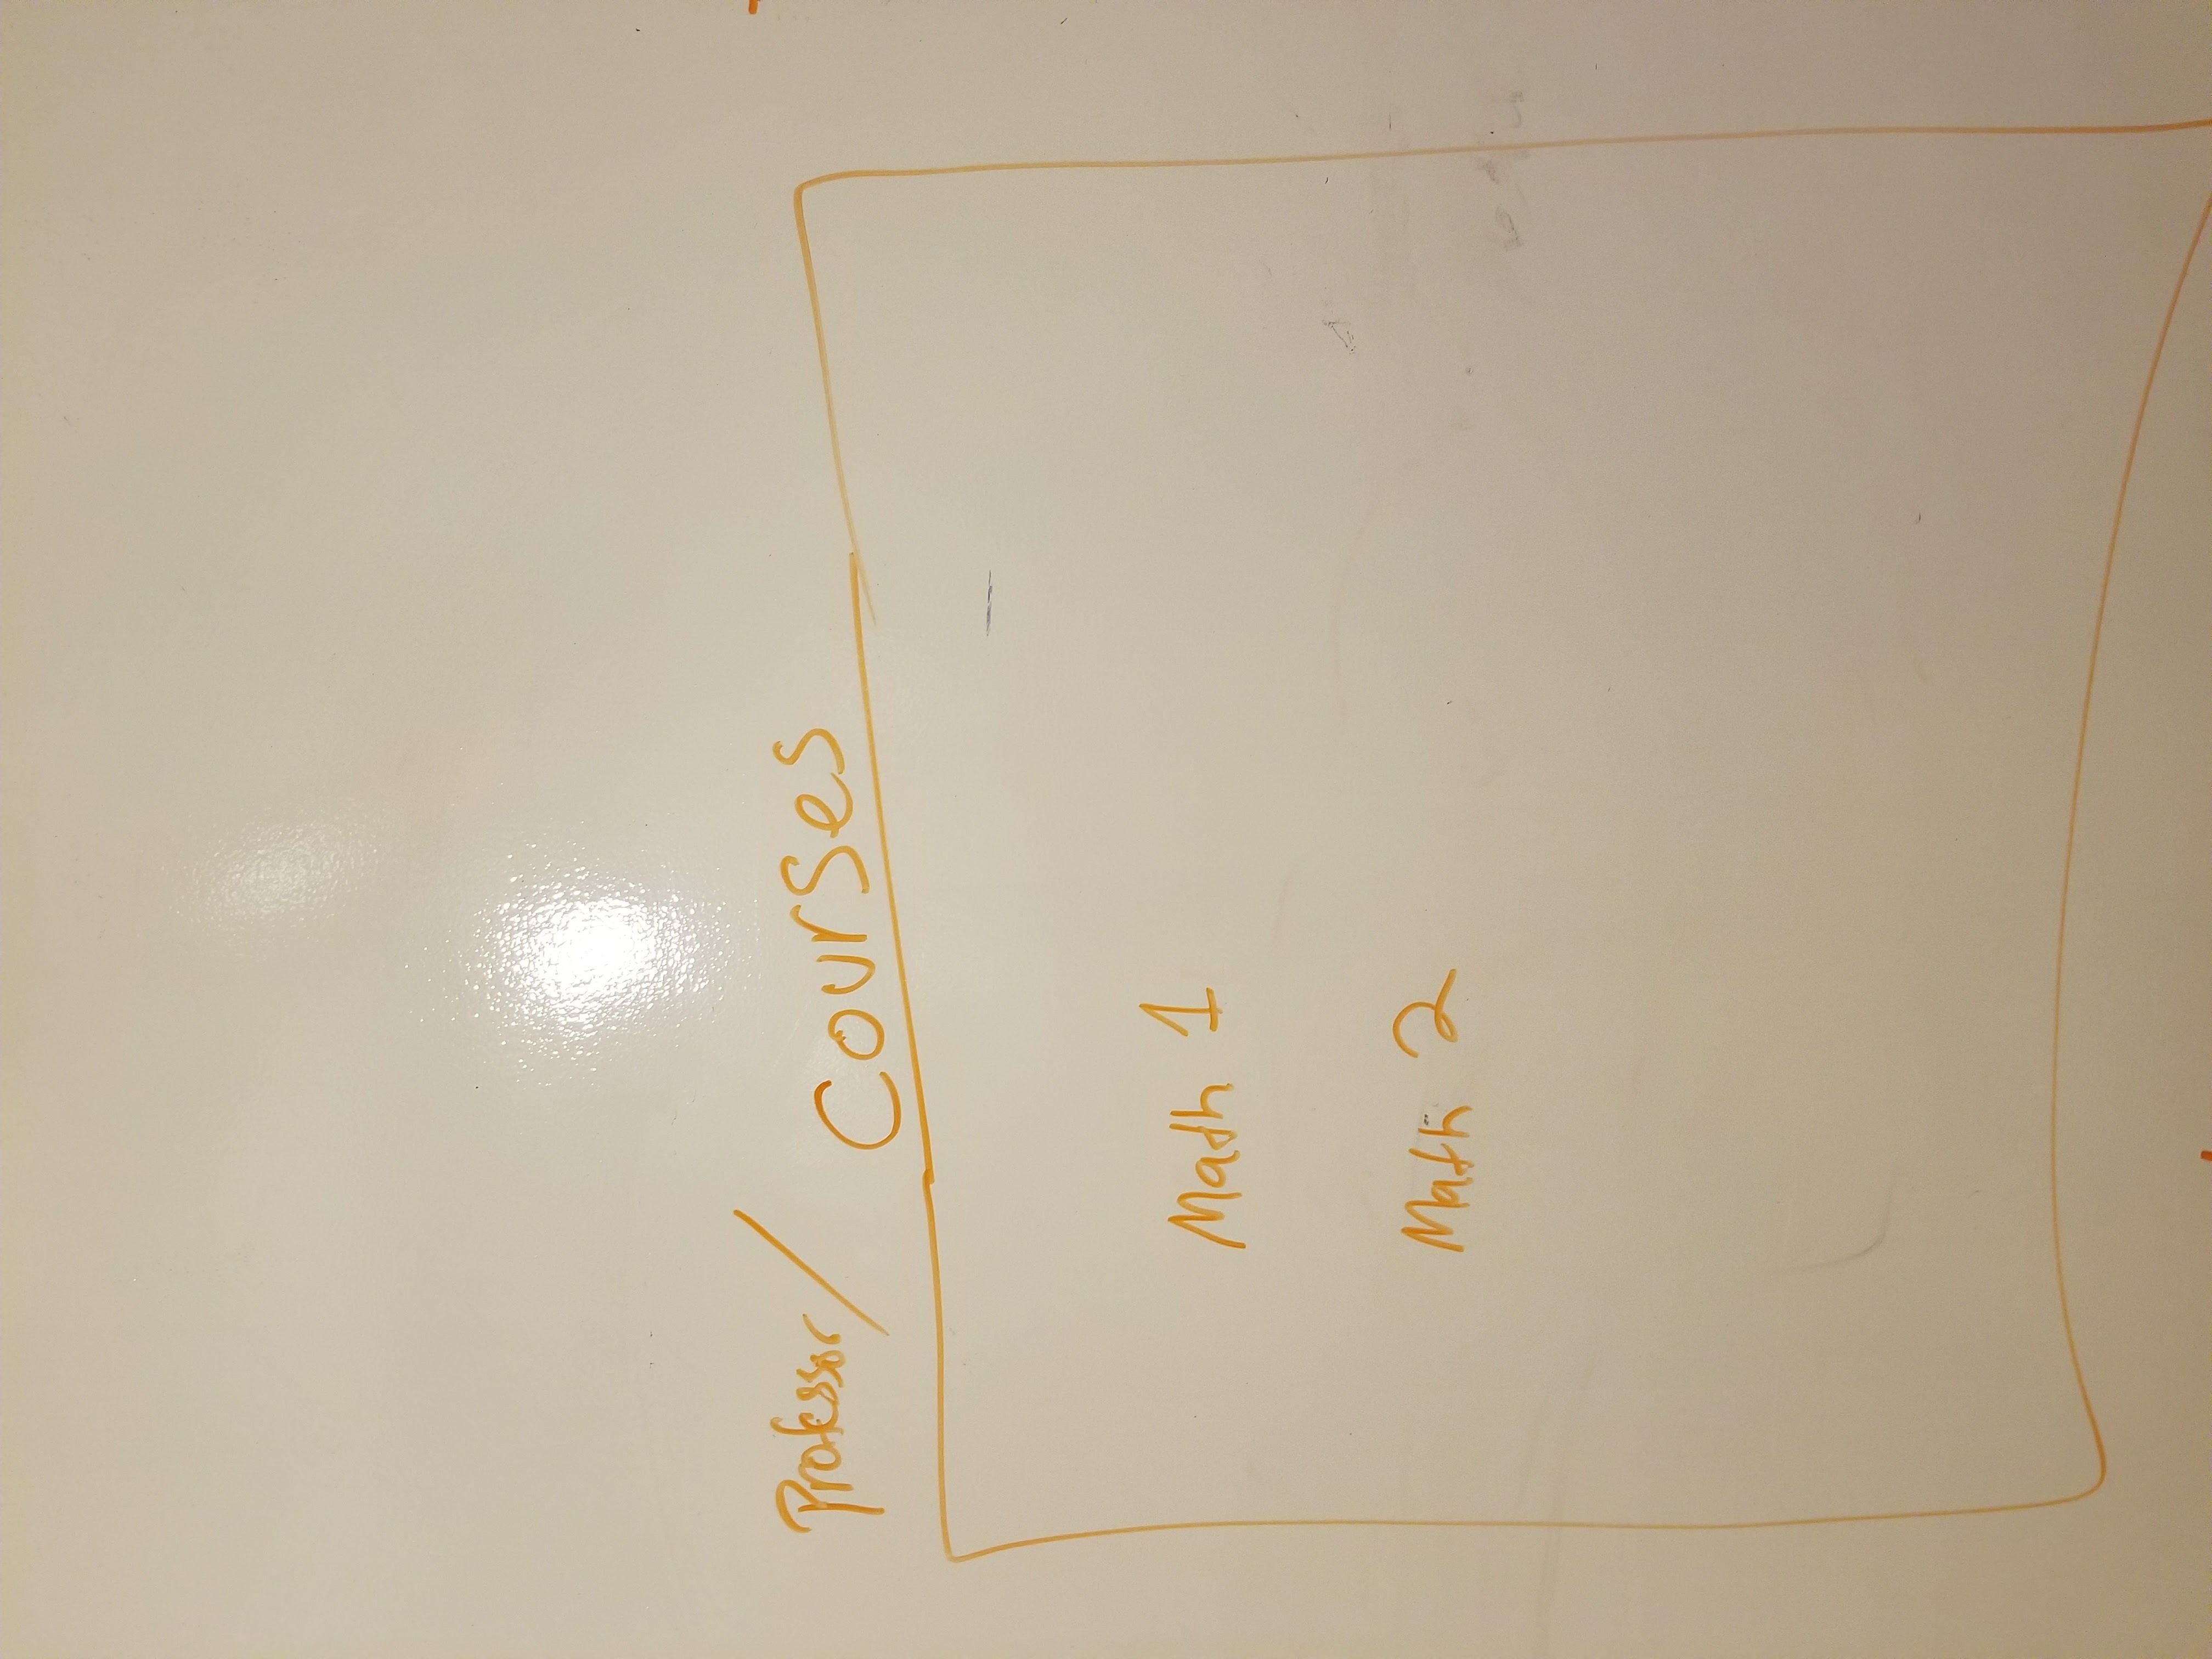 Professor/ Courses
Math 1
Math 2